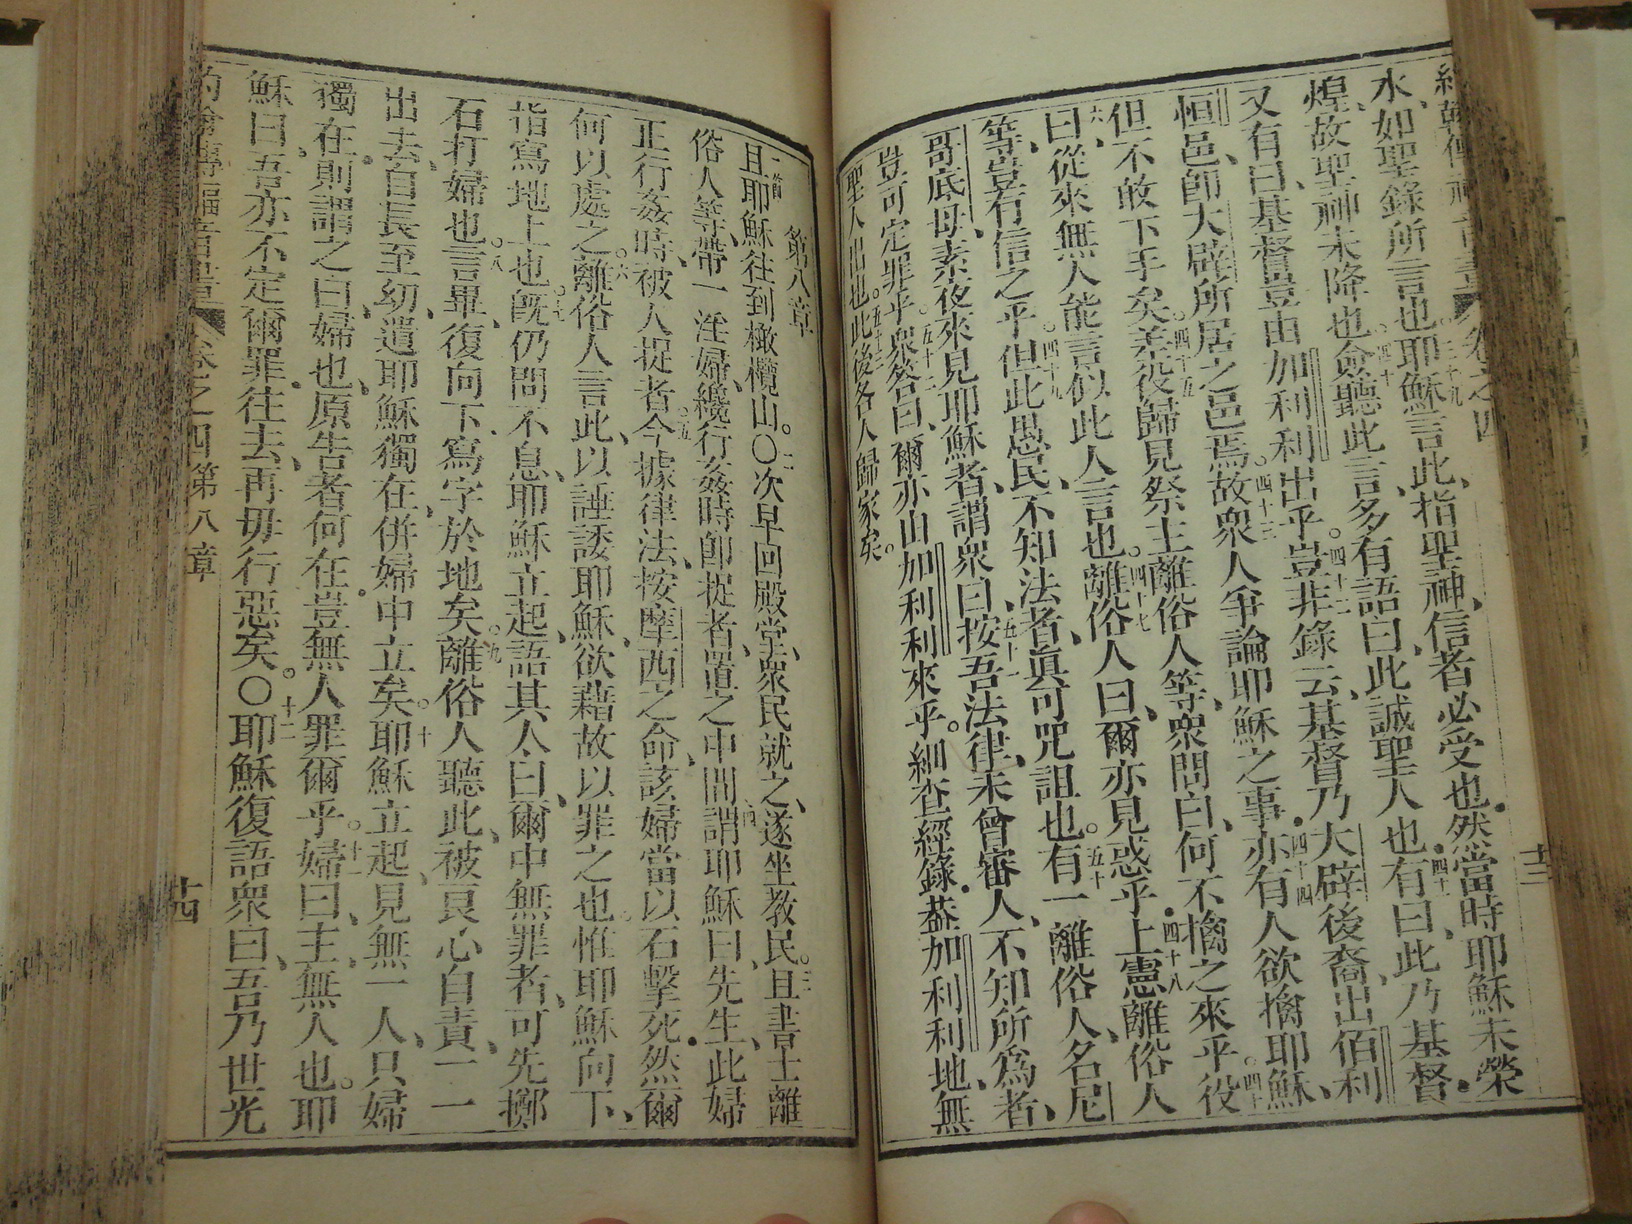 約翰傳福音書 卷之四 十三
水、如聖錄所言也。三十九耶穌言此、指聖神、信者必受也。然當時耶穌未榮
煌、故聖神未降也。四十僉聽此言、多有語曰、此誠聖人也。四十一有曰、此乃基督。
又有曰、基督豈由加利利出乎。四十二豈非錄云、基督乃大辟後裔、出佰利
恒邑、卽大辟所居之邑焉。四十三故衆人爭論耶穌之事。四十四亦有人欲擒耶穌、
但不敢下手矣。四十五差役歸見祭主離俗人等、衆問曰、何不擒之來乎。四十役
六曰、從來無人能言似此人言也。四十七離俗人曰、爾亦見惑乎。四十八上憲離俗人
等、豈有信之乎。四十九但此愚民、不知法者、眞可咒詛也。五十有一離俗人、名尼
哥底母、素夜來見耶穌者、謂衆曰、五十一按吾法律、未曾審人、不知所爲者、
豈可定罪乎。五十二衆答曰、爾亦由加利利來乎。細查經錄、葢加利利地、無
聖人出也。五十三此後各人歸家矣。
第八章
一節且耶穌往到橄欖山。〇二次早回殿堂、衆民就之、遂坐教民。三且書士離
俗人等、帶一淫婦、纔行姦時、卽捉者、置之中間、四謂耶穌曰、先生、此婦
正行姦時、被人捉者。五今據律法、按摩西之命、該婦當以石擊死。然爾
何以處之。六離俗人言此、以誣諉耶穌、欲藉故以罪之也。惟耶穌向下、
指寫地上也。七旣仍問不息、耶穌立起、語其人曰、爾中無罪者、可先擲
石打婦也。八言畢、復向下、寫字於地矣。九離俗人聽此、被良心自責、一一
出去、自長至幼、遣耶穌獨在、併婦中立矣。十耶穌立起、見無一人、只婦
獨在、則謂之曰、婦也、原告者何在、豈無人罪爾乎。十一婦曰、主、無人也。耶
穌曰、吾亦不定爾罪、往去、再毋行惡矣。〇十二耶穌復語衆曰、吾乃世光
約翰傳福音書 卷之四 第八章 十四